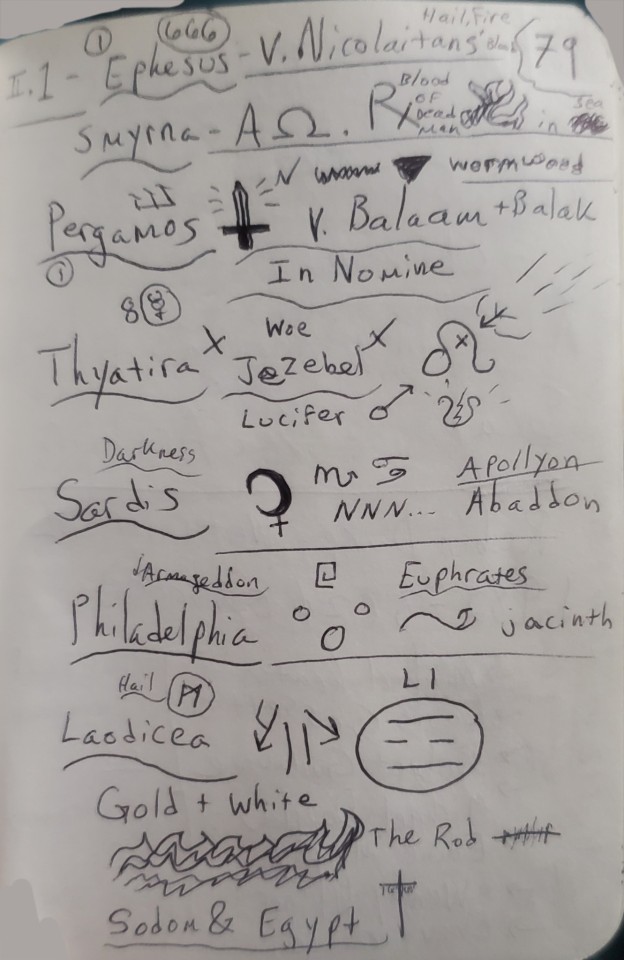 Hail, Fire
① 666
II.1 - Ephesus - V. Nicolaitans 79
Blood
OF
Dead
Man
Smyrna - A Ω. R in sea
N wormwood
III
Pergamos V. Balaam + Balak
①
In Nomine
8 ☿
Woe
Thyatira x Jezebel x ♌
Lucifer ♂
Darkness
Sardis ♏ ♋ Apollyon
NNN... Abaddon
Armageddon Euphrates
Philadelphia jacinth
Hail
Laodicea LI
Gold + white
The Rod
Sodom & Egypt